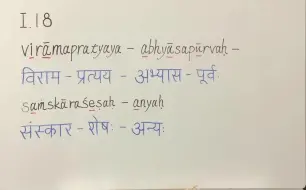 I.18
virāmapratyaya – abhyāsapūrvaḥ –
विराम – प्रत्यय – अभ्यास – पूर्वः
saṃskāraśeṣaḥ – anyaḥ
संस्कार – शेषः – अन्यः